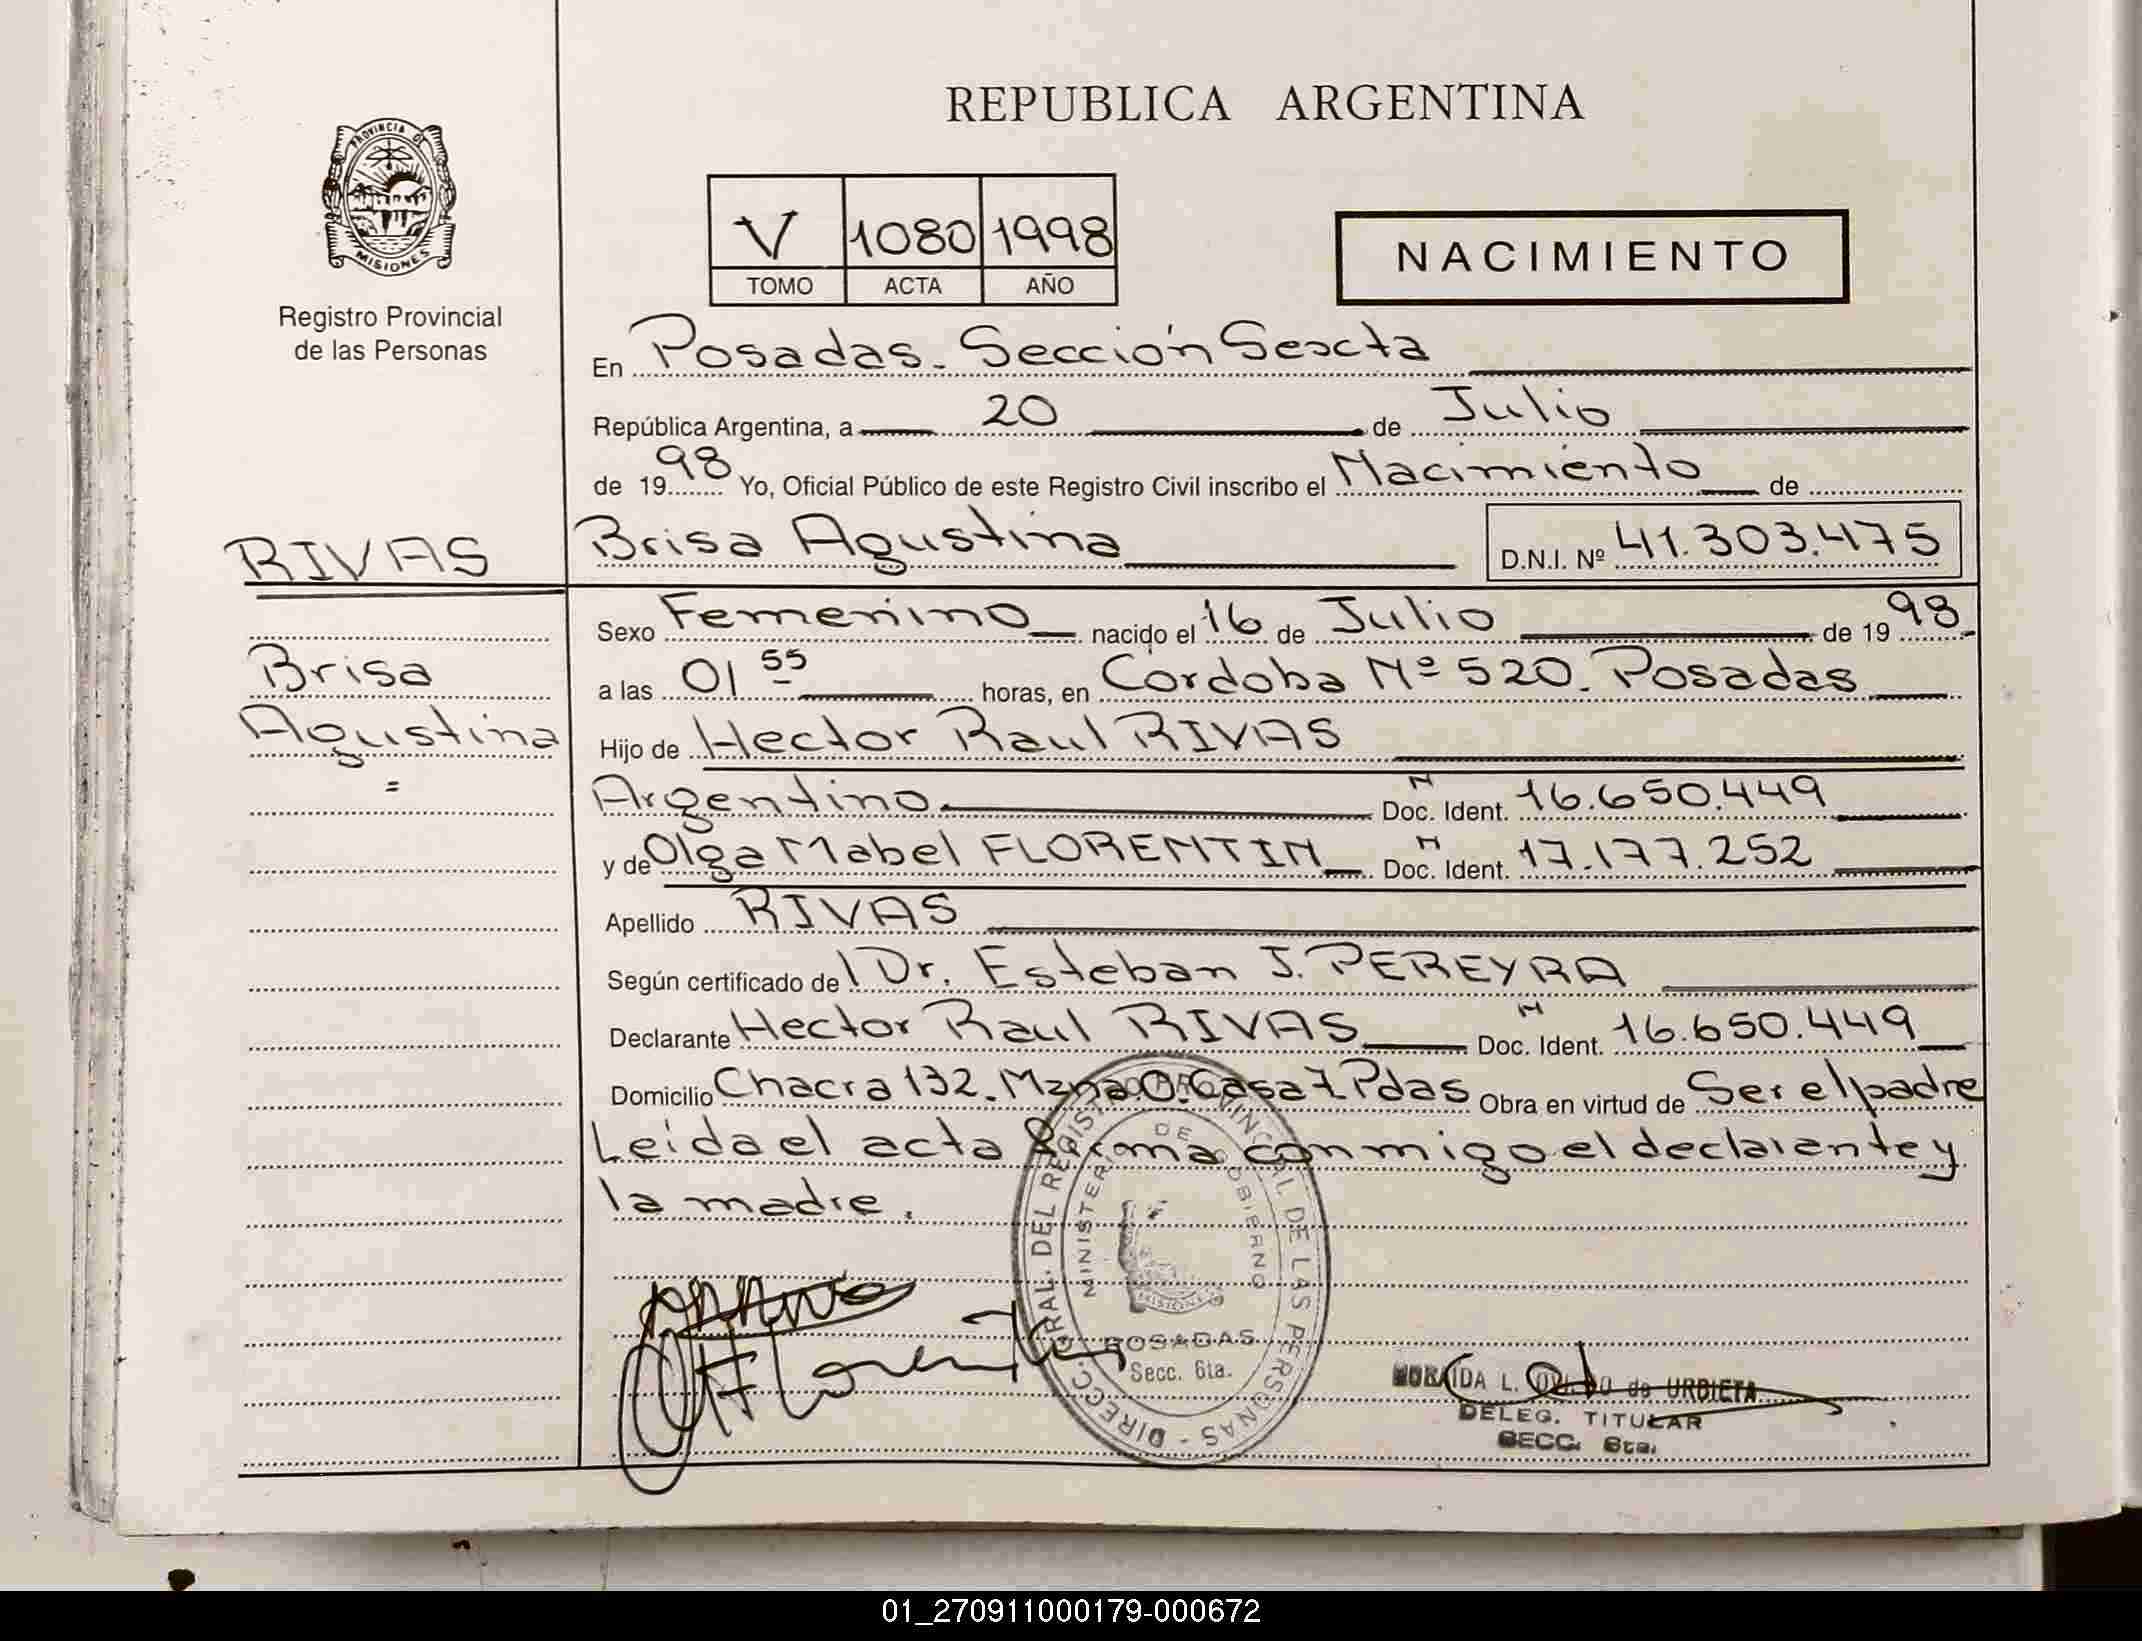 REPUBLICA ARGENTINA
PROVINCIA DE
MISIONES
Registro Provincial
de las Personas
V 1080 1998
TOMO ACTA AÑO
NACIMIENTO
En Posadas. Sección Sexta
República Argentina, a 20 de Julio
de 1998 Yo, Oficial Público de este Registro Civil inscribo el Nacimiento de
RIVAS Brisa Agustina D.N.I. Nº 41.303.475
Sexo Femenino nacido el 16 de Julio de 1998
Brisa a las 01 55 horas, en Cordoba Nº 520. Posadas
Agustina Hijo de Hector Raul RIVAS
= Argentino. Doc. N Ident. 16.650.449
y de Olga Mabel FLORENTIN Doc. N Ident. 17.177.252
Apellido RIVAS
Según certificado del Dr. Esteban J. PEREYRA
Declarante Hector Raul RIVAS Doc. N Ident. 16.650.449
Domicilio Chacra 132. Mzna O. Casa 7. Pdas Obra en virtud de Ser el padre
Leída el acta firma conmigo el declarante y
la madre.
DIRECC. GRAL. DEL REGISTRO PROVINCIAL DE LAS PERSONAS -
MINISTERIO DE GOBIERNO
MISIONES
POSADAS
Secc. 6ta.
Florentin
L. de URBIETA
DELEG. TITULAR
SECC. 6ta.
01_270911000179-000672